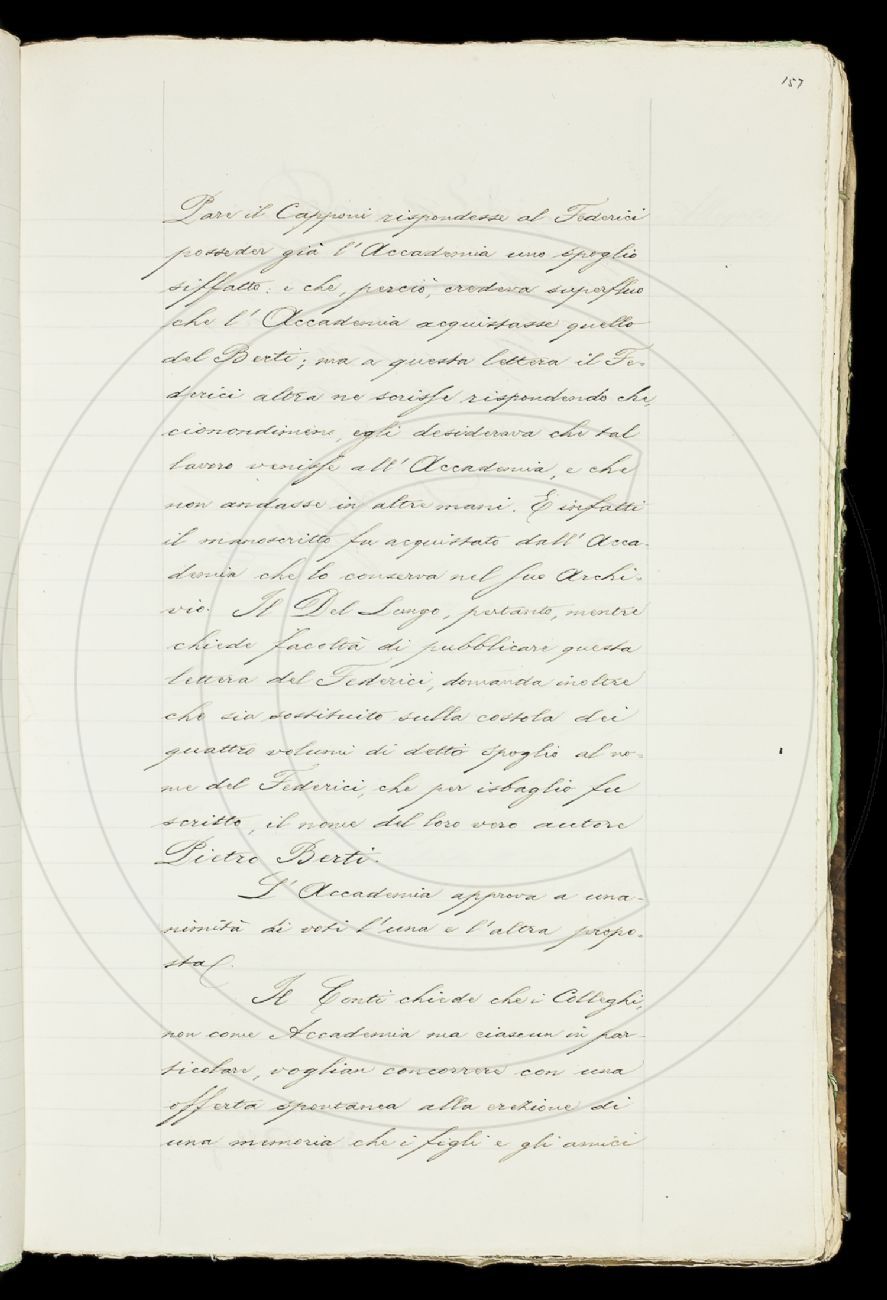 157
Pare il Capponi rispondesse al Federici
posseder già l'Accademia uno spoglio
siffatto: e che, perciò, credeva superfluo
che l'Accademia acquistasse quello
del Berti; ma a questa lettera il Fe-
derici altra ne scrisse rispondendo che,
ciononndimeno, egli desiderava che tal
lavoro venisse all'Accademia, e che
non andasse in altre mani. E infatti
il manoscritto fu acquistato dall'Acca-
demia che lo conserva nel suo Archi-
vio. Il Del Lungo, pertanto, mentre
chiede facoltà di pubblicare questa
lettera del Federici, domanda inoltre
che sia sostituito sulla costola dei
quattro volumi di detto spoglio al no-
me del Federici, che per isbaglio fu
scritto, il nome del loro vero autore
Pietro Berti.
L'Accademia approva a una-
nimità di voti l'una e l'altra propo-
sta.
Il Conti chiede che i Colleghi,
non come Accademia ma ciascun in par-
ticolare, vogliano concorrere con una
offerta spontanea alla erezione di
una memoria che i figli e gli amici